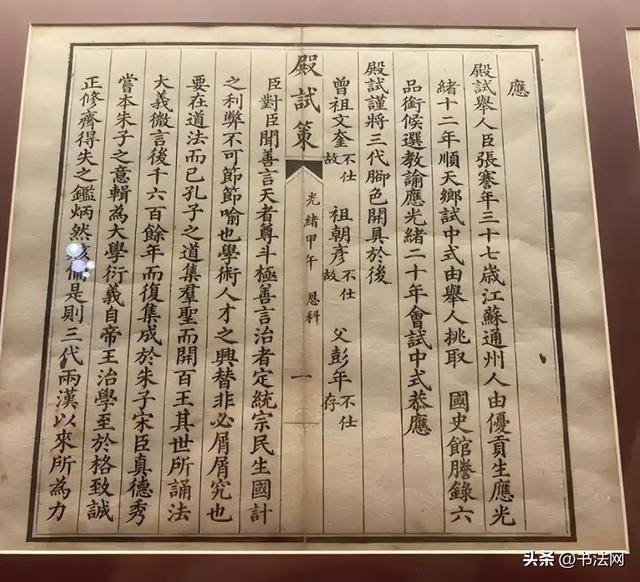 應
殿試舉人臣張謇年三十七歲江蘇通州人由優貢生應光
緒十二年順天鄉試中式由舉人挑取 國史館謄錄六
品銜候選教諭應光緒二十年會試中式恭應
殿試謹將三代腳色開具於後
曾祖文奎不仕故 祖朝彥不仕故 父彭年不仕存
殿試策 光緒甲午 恩科 一
臣對臣聞善言天者尊斗極善言治者定統宗民生國計
之利弊不可節節喻也學術人才之興替非必屑屑究也
要在道法而已孔子之道集羣聖而開百王其世所誦法
大義微言後千六百餘年而復集成於朱子宋臣真德秀
嘗本朱子之意輯為大學衍義自帝王治學至於格致誠
正修齊得失之鑑炳然該備是則三代兩漢以來所為力
头条 @书法网